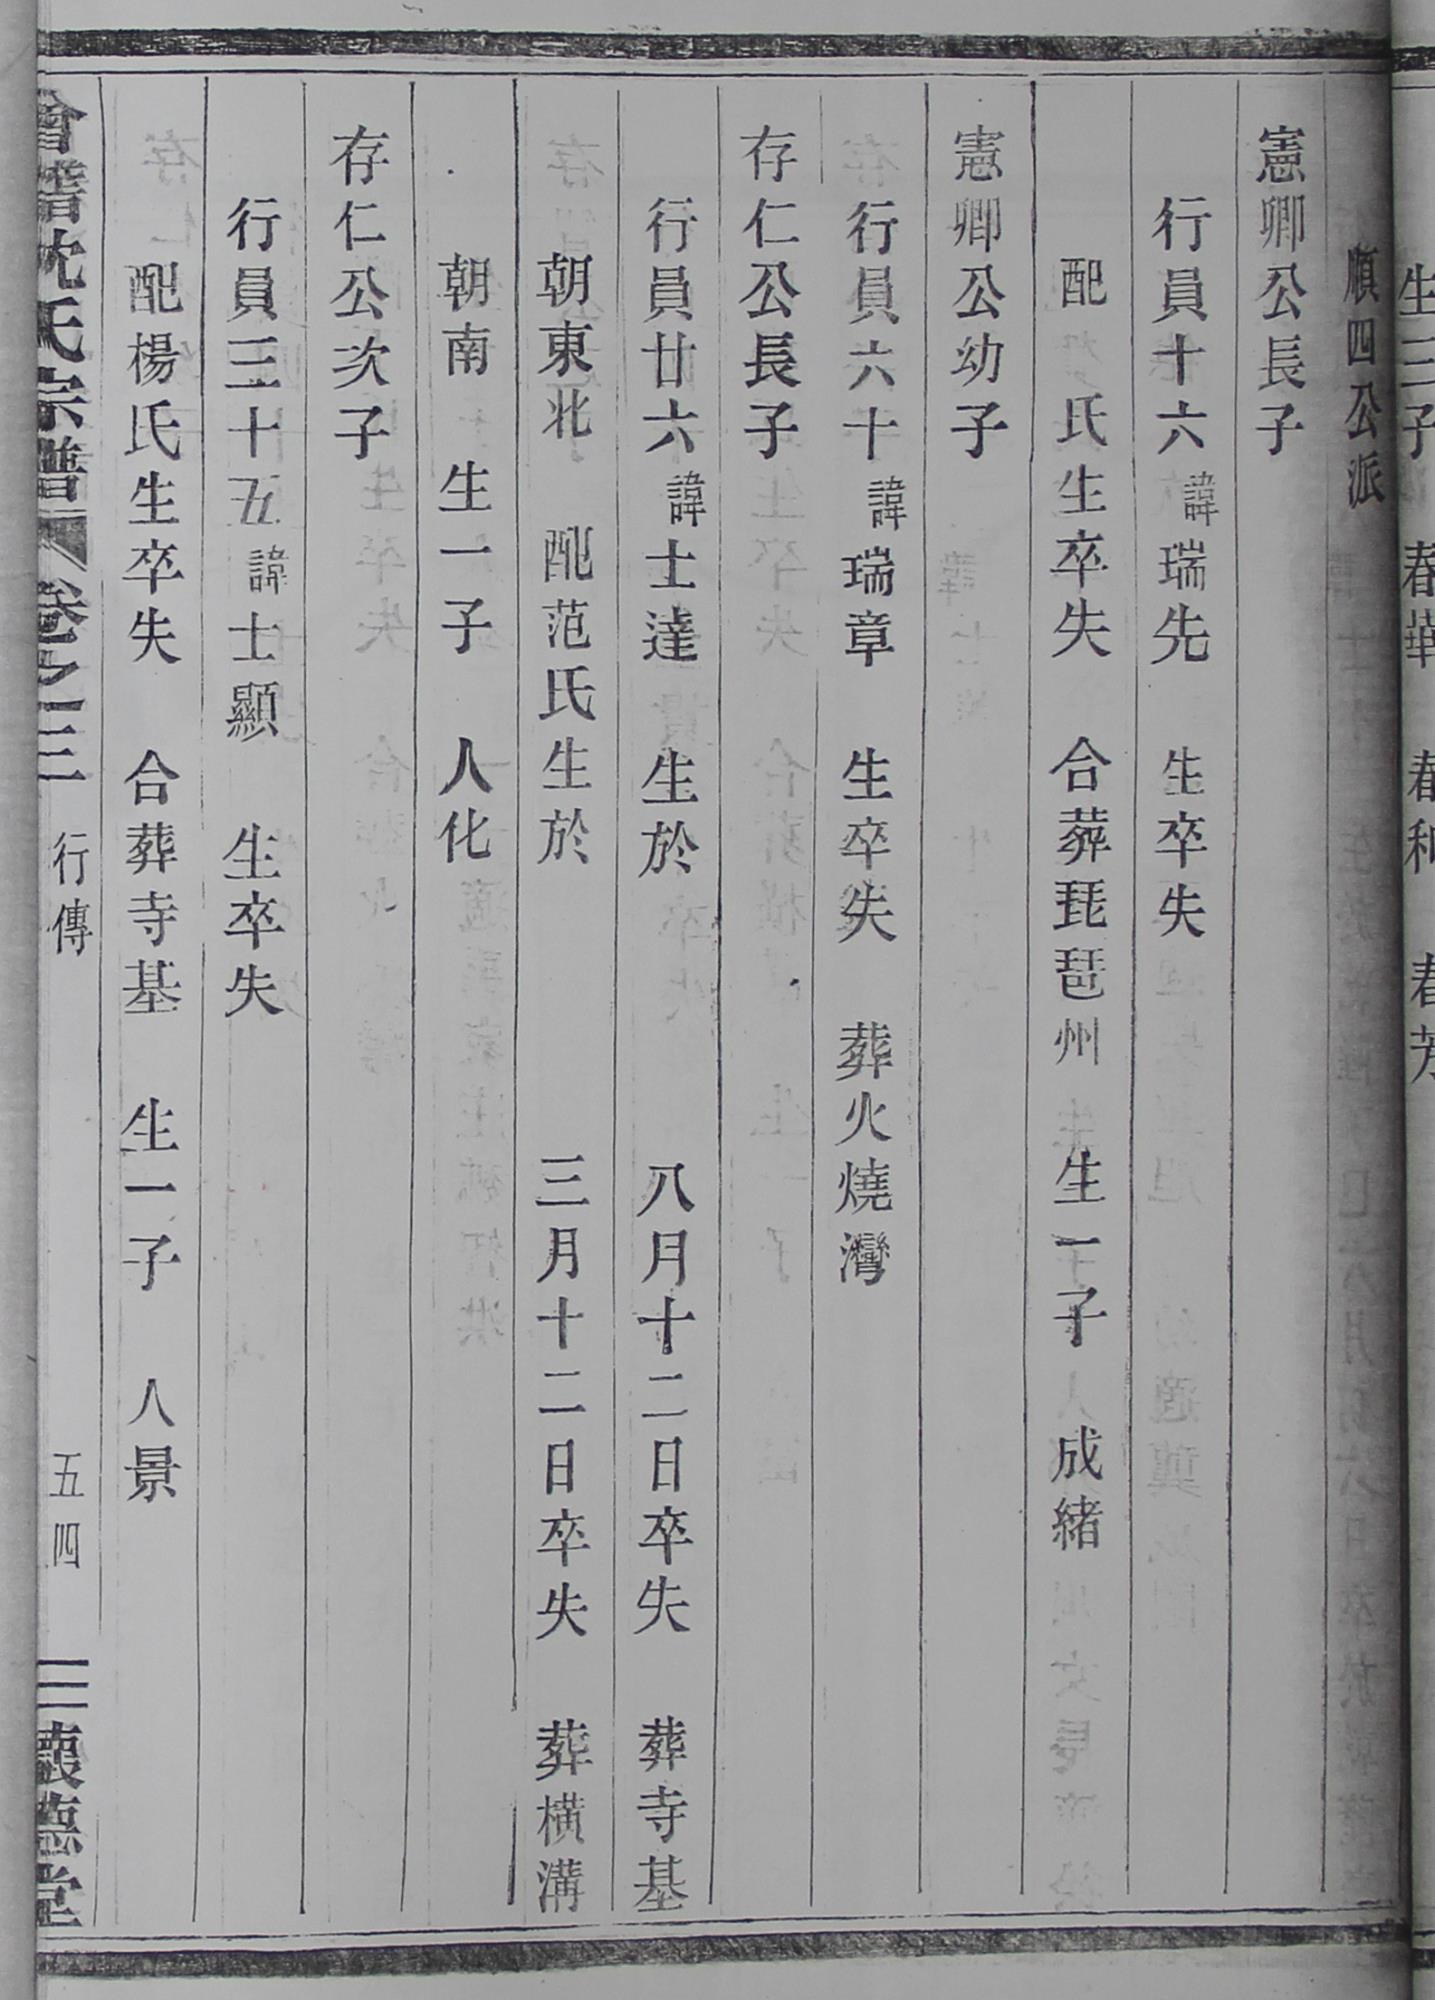 生三子　春華　春和　春芳
順四公派
憲卿公長子
行員十六諱瑞先　生卒失
配　氏生卒失　合葬琵琶州　生一子　成緒
憲卿公幼子
行員六十諱瑞章　生卒失　葬火燒灣
存仁公長子
行員廿六諱士達　生於　八月十二日卒失　葬寺基
朝東北　配范氏生於　三月十二日卒失　葬橫溝
朝南　生一子　人化
存仁公次子
行員三十五諱士顯　生卒失
配楊氏生卒失　合葬寺基　生一子　人景
會稽沈氏宗譜　卷之三　行傳　五四　懷德堂